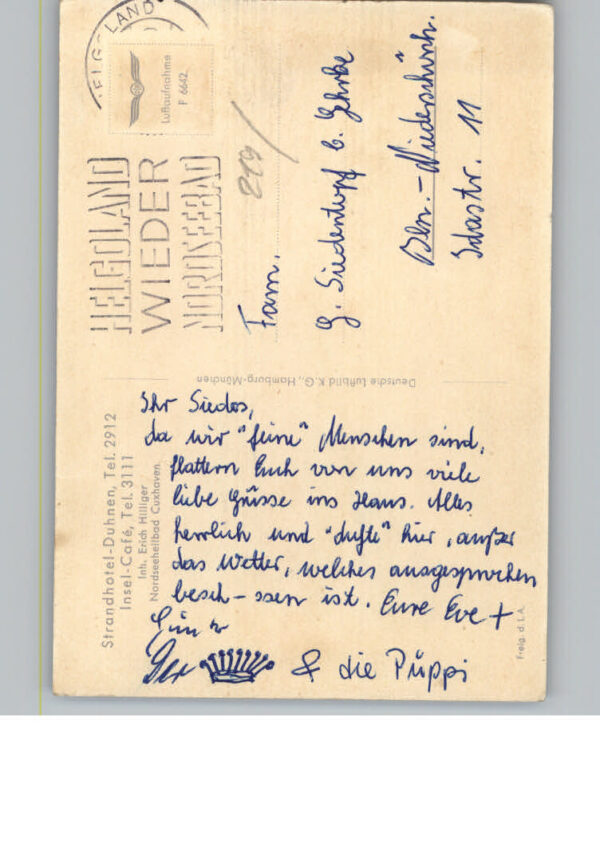 Strandhotel-Duhnen, Tel. 2912
Insel-Café, Tel. 3111
Inh. Erich Hilliger
Nordseeheilbad Cuxhaven
Ihr Siedos,
da wir "feine" Menschen sind,
flattern Euch von uns viele
liebe Grüsse ins Haus. Alles
herrlich und "dufte" hier, außer
das Wetter, welches ausgesprochen
besch-ssen ist. Eure Eve +
& die Püppi
Freig. d. L.A.
Deutsche Luftbild K.G., Hamburg-München
HELGOLAND
Luftaufnahme
F 6642
HELGOLAND
WIEDER
NORDSEEBAD
219/
Fam.
G. Siedentopf b. Gehrke
Bln.-Niederschönh.
Idastr. 11